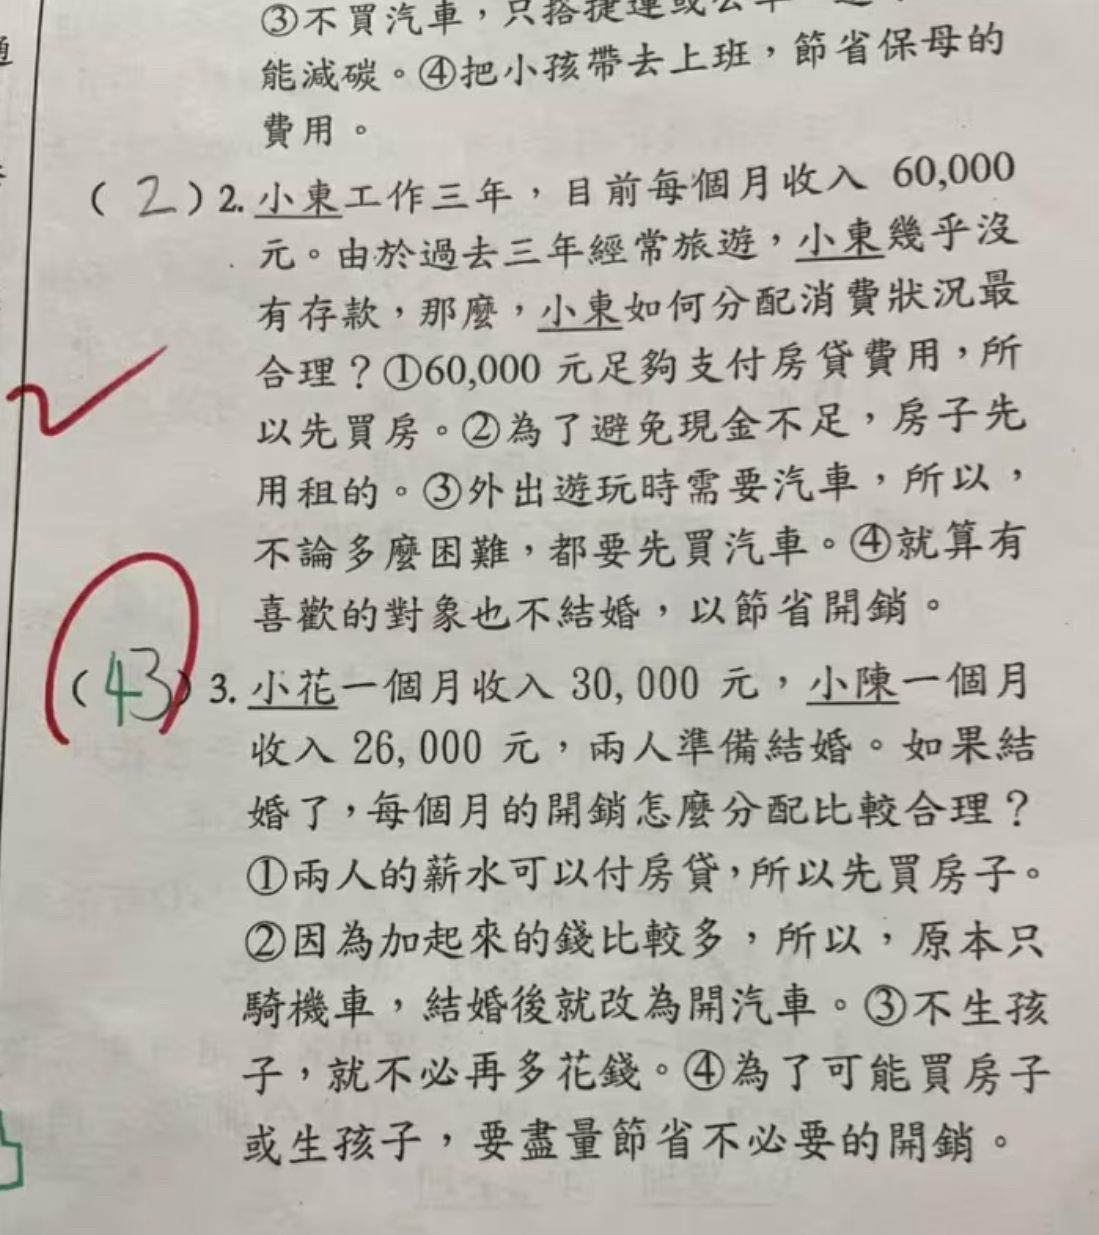 ③不買汽車，只搭捷運或公車
能減碳。④把小孩帶去上班，節省保母的
費用。
（2）2. 小東工作三年，目前每個月收入 60,000
元。由於過去三年經常旅遊，小東幾乎沒
有存款，那麼，小東如何分配消費狀況最
合理？①60,000 元足夠支付房貸費用，所
以先買房。②為了避免現金不足，房子先
用租的。③外出遊玩時需要汽車，所以，
不論多麼困難，都要先買汽車。④就算有
喜歡的對象也不結婚，以節省開銷。
（43）3. 小花一個月收入 30,000 元，小陳一個月
收入 26,000 元，兩人準備結婚。如果結
婚了，每個月的開銷怎麼分配比較合理？
①兩人的薪水可以付房貸，所以先買房子。
②因為加起來的錢比較多，所以，原本只
騎機車，結婚後就改為開汽車。③不生孩
子，就不必再多花錢。④為了可能買房子
或生孩子，要盡量節省不必要的開銷。